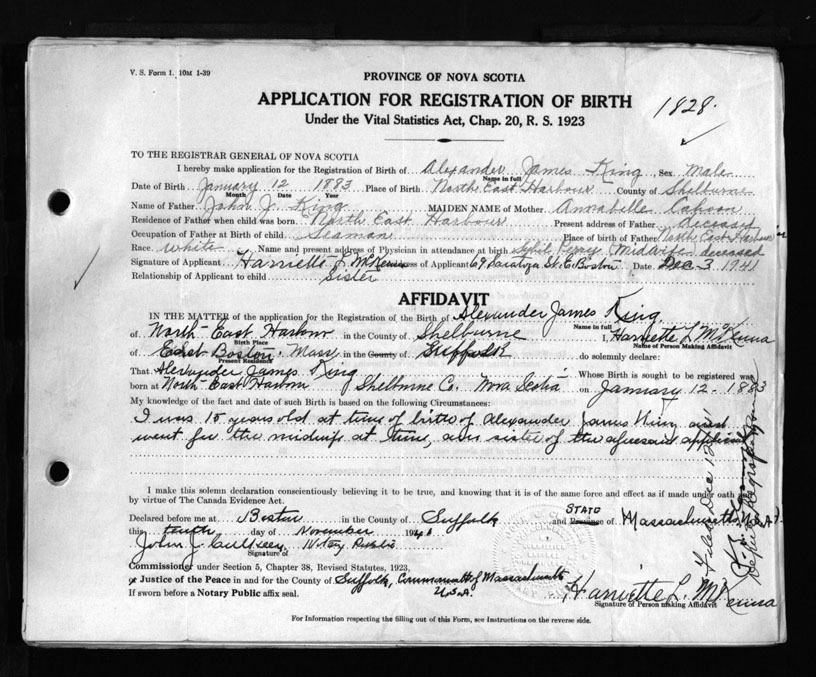 V. S. Form 1. 10M 1-39
PROVINCE OF NOVA SCOTIA
APPLICATION FOR REGISTRATION OF BIRTH
1828.
Under the Vital Statistics Act, Chap. 20, R. S. 1923
TO THE REGISTRAR GENERAL OF NOVA SCOTIA
I hereby make application for the Registration of Birth of Alexander James King, Sex Male
Name in full
Date of Birth January 12 1883 Place of Birth North East Harbour County of Shelburne
Month Date Year
Name of Father John J. King MAIDEN NAME of Mother Annabelle Cahoon
Residence of Father when child was born North East Harbour Present address of Father deceased
Occupation of Father at Birth of child Seaman Place of birth of Father North East Harbour
Race white Name and present address of Physician in attendance at birth Sybil Perry Midwife deceased
Signature of Applicant Harriette L McKenna Address of Applicant 69 Saratoga St. E. Boston Date Dec 3 1941
Relationship of Applicant to child Sister
AFFIDAVIT
IN THE MATTER of the application for the Registration of Birth of Alexander James King
Name in full
of North East Harbour in the County of Shelburne I, Harriette L McKenna
Birth Place Name of Person Making Affidavit
of East Boston Mass in the County of Suffolk do solemnly declare:
Present Residence
That Alexander James King Whose Birth is sought to be registered was
born at North East Harbour Shelburne Co. Nova Scotia on January 12 - 1883
My knowledge of the fact and date of such Birth is based on the following Circumstances:
I was 15 years old at time of birth of Alexander James King and
went for the midwife at time, am sister of the aforesaid applicant
I make this solemn declaration conscientiously believing it to be true, and knowing that it is of the same force and effect as if made under oath and
by virtue of The Canada Evidence Act.
Declared before me at Boston in the County of Suffolk and State Province of Massachusetts, U.S.A.
this tenth day of November 194
John J. Notary Public
Signature of
Commissioner under Section 5, Chapter 38, Revised Statutes, 1923,
or Justice of the Peace in and for the County of Suffolk, Commonwealth of Massachusetts
U.S.A.
If sworn before a Notary Public affix seal.
Harriette L. McKenna
Signature of Person making Affidavit
For Information respecting the filling out of this Form, see Instructions on the reverse side.
Filed Dec 12/41
Deputy Registrar